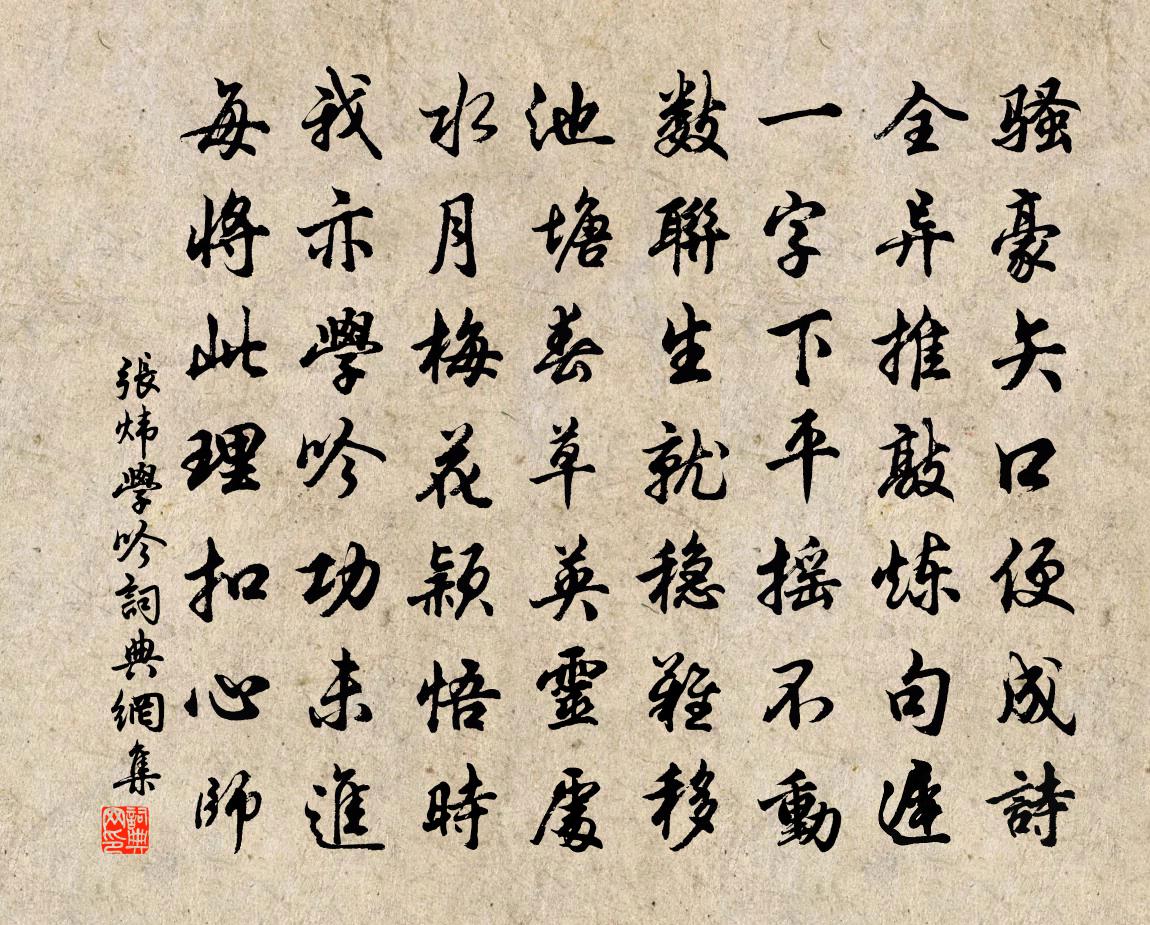 騷豪矢口便成詩
全异推敲炼句遲
一字下平摇不動
數聯生就稳難移
池塘春草英靈處
水月梅花颖悟時
我亦學吟功未進
每將此理扣心師
張炜學吟詞典網集
詞典网印